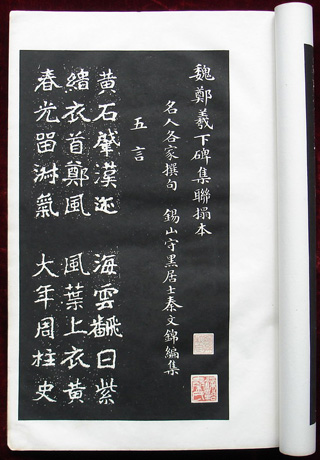 魏鄭羲下碑集聯搨本
名人各家撰句 錫山守黑居士秦文錦編集
五言
黃石肇漢迹 海雲飜日紫
緇衣首鄭風 風葉上衣黃
春光留淑氣 大年周柱史